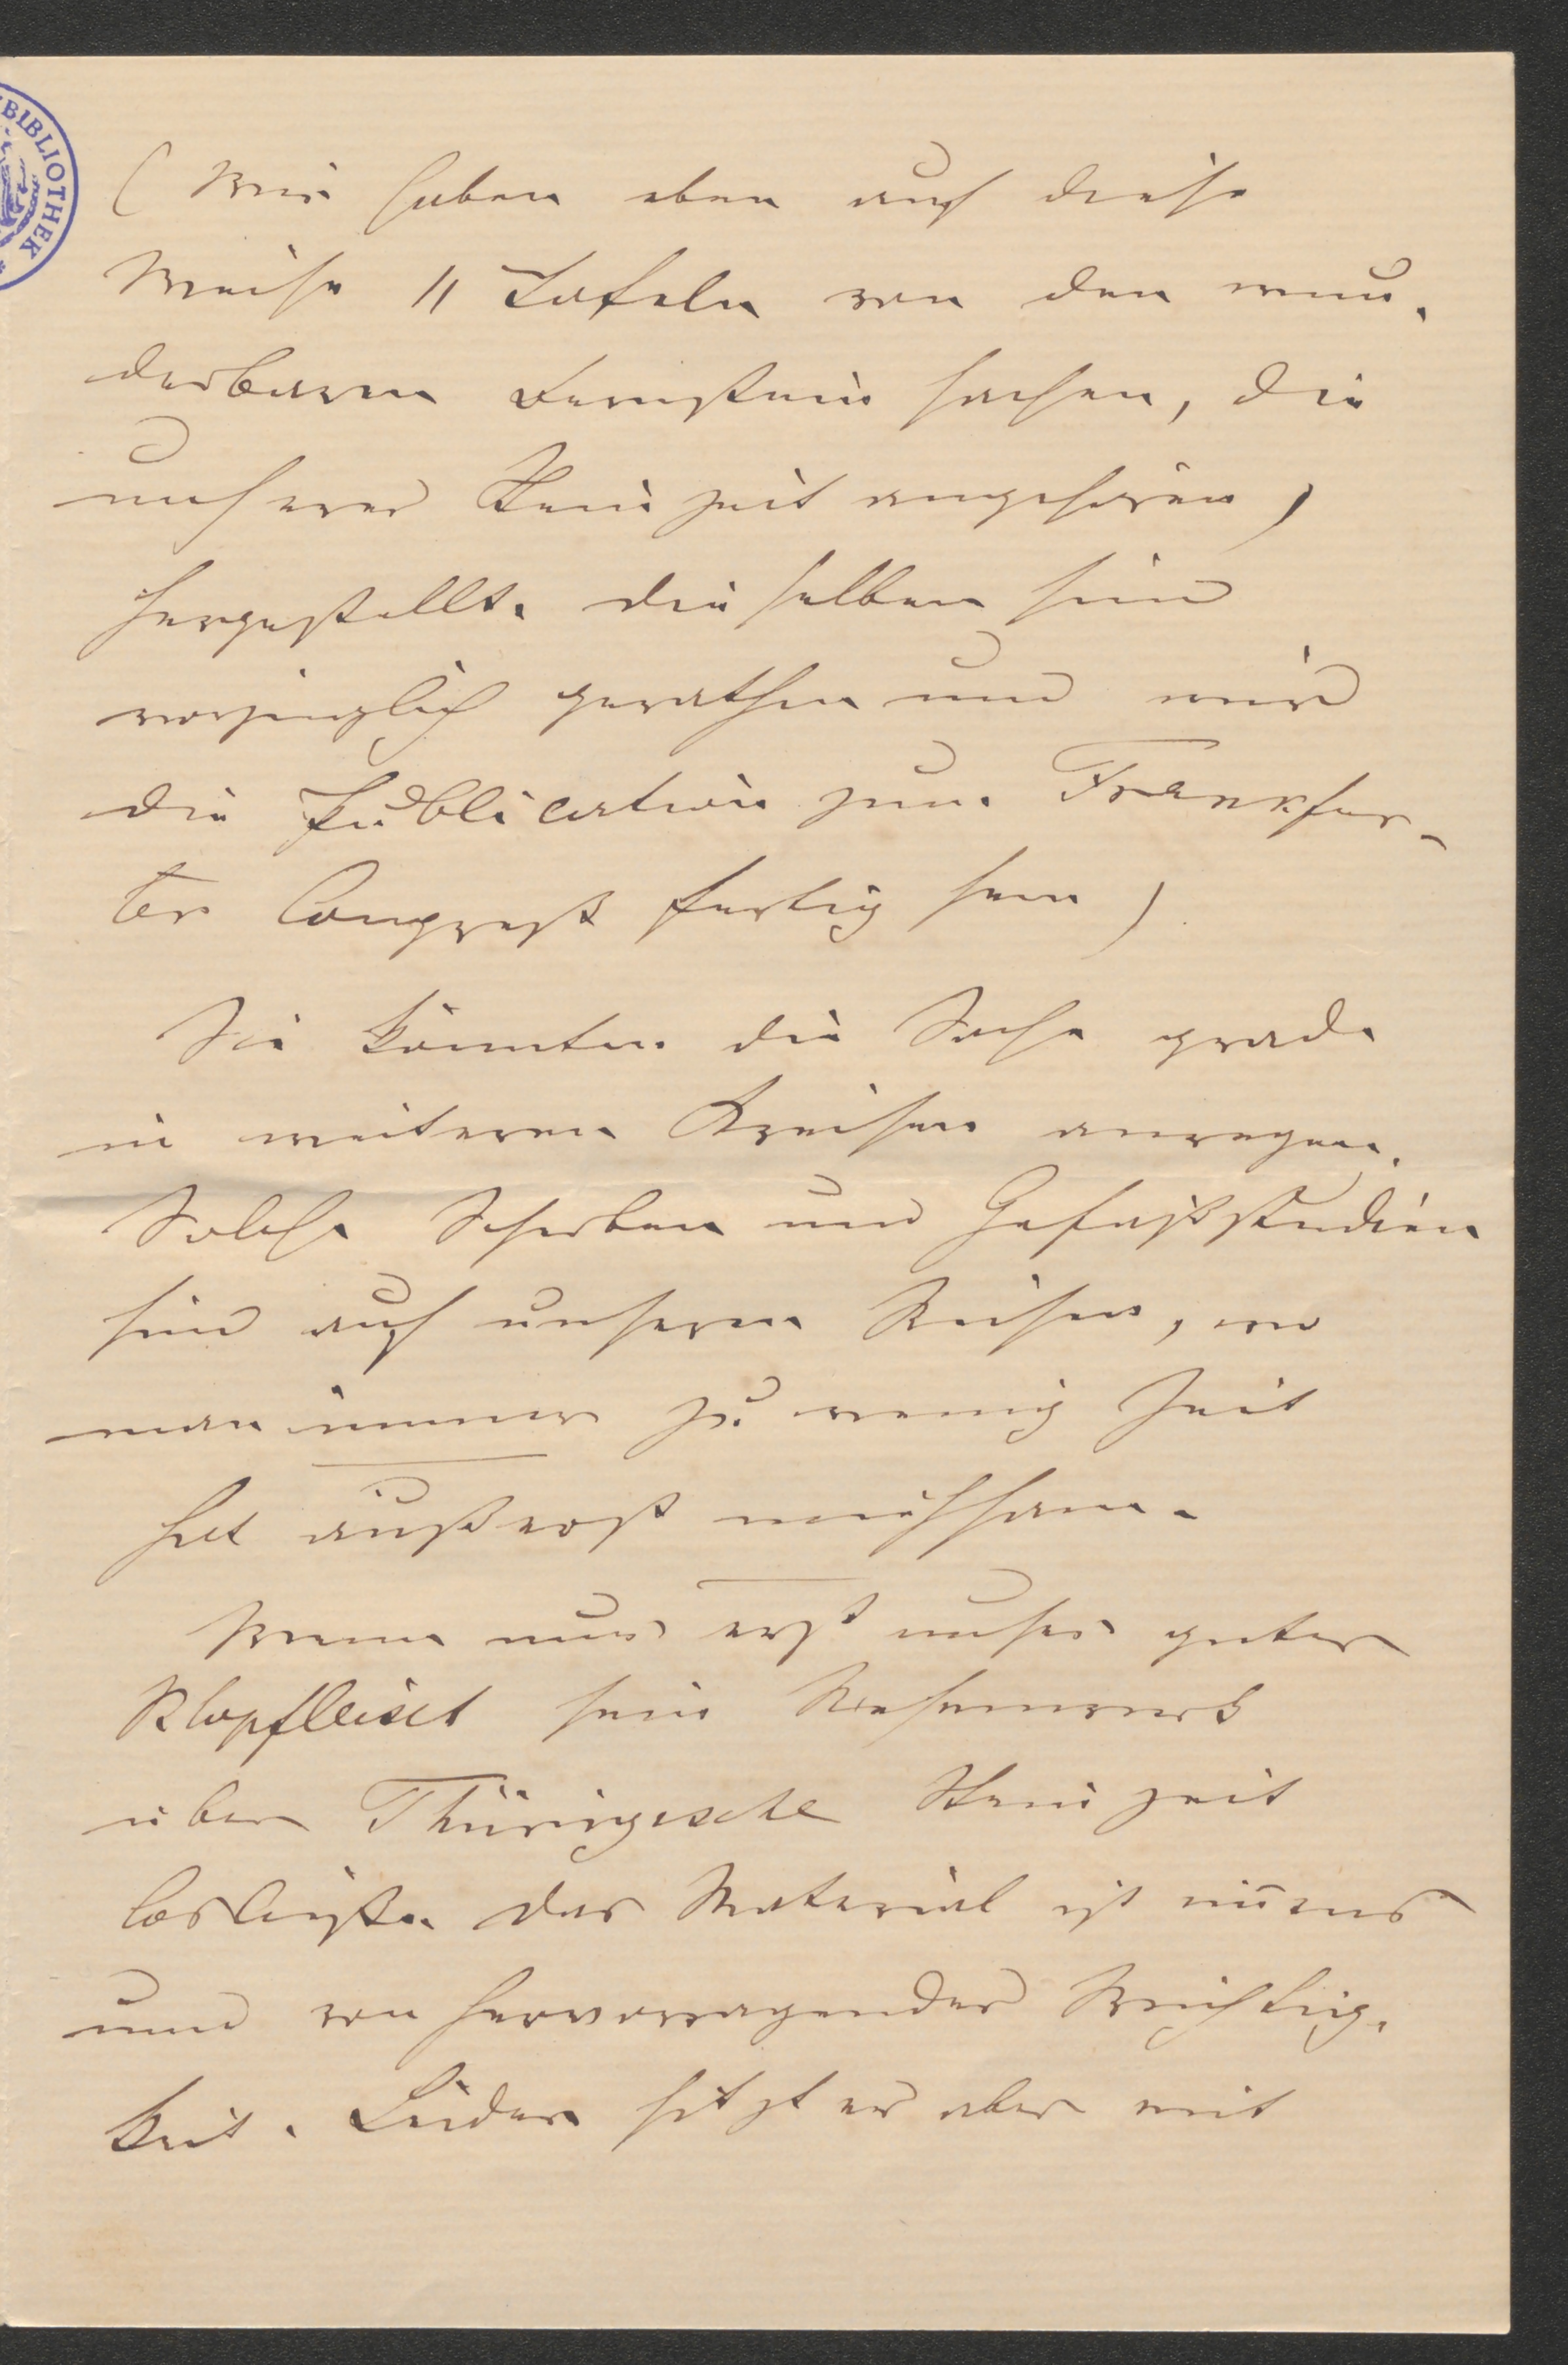 BIBLIOTHEK
(Wir haben eben auf diese
Weise 11 Tafeln von den wun-
derbaren Bernstein sachen, die
unserer Steinzeit angehören,
hergestellt. Die selben sind
vorzüglich gerathen und wird
die Publication zum Frankfur-
ter Congreß fertig sein)
Sie könnten die Sache grade
in weiteren Kreisen anregen.
Solche Scherben und Gefäßstudien
sind auf unseren Reisen, wo
man immer zu wenig Zeit
hat äußerst mühsam.
Wenn nur erst unser guter
Klopfleisch sein Riesenwerk
über Thüringische Steinzeit
losließe. Das Material ist im̄ens
und von hervorragender Wichtig-
keit. Leider sitzt er aber mit